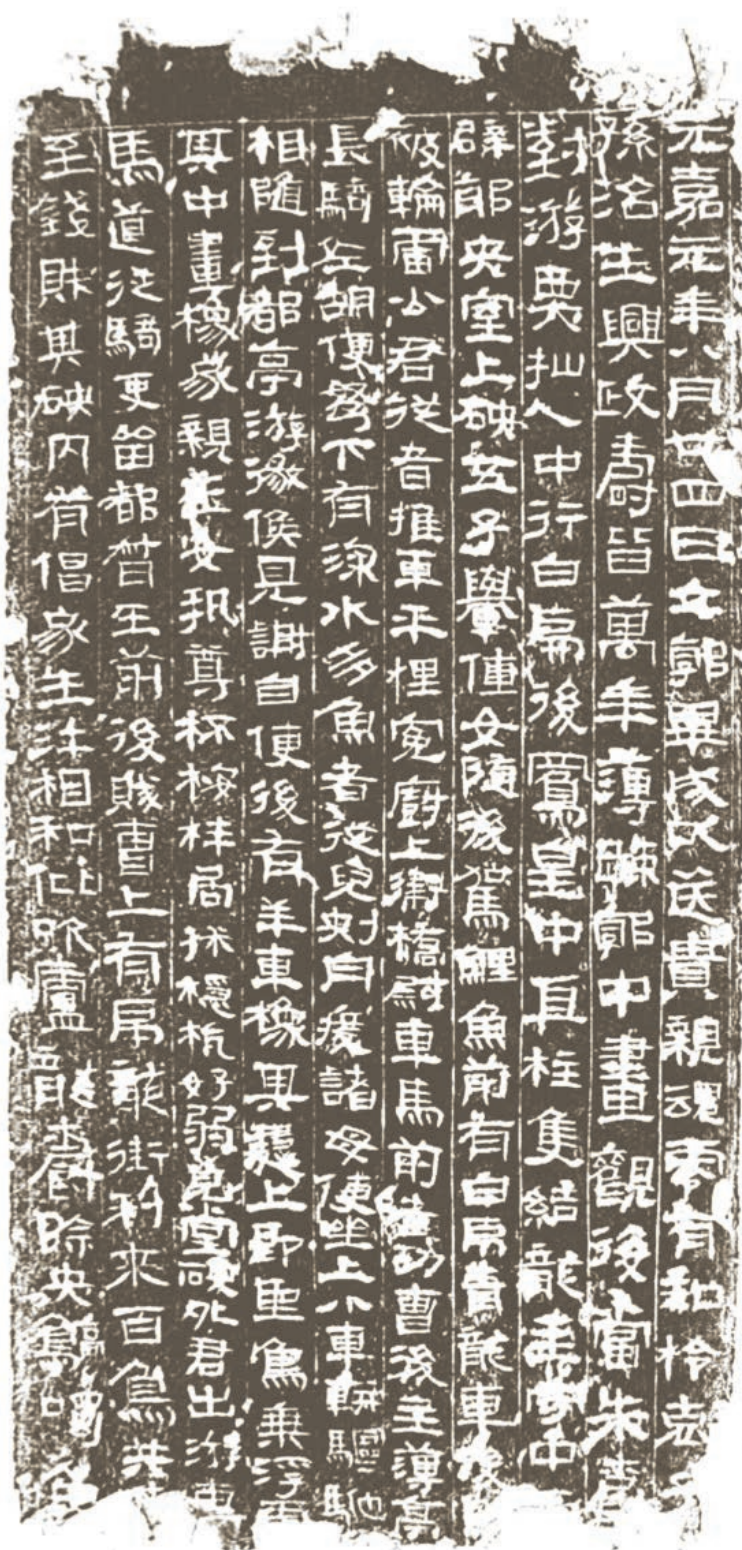 元嘉元年八月廿四日立郭畢成以送貴親魂零有知柃哀
孫治生興政壽皆萬年薄踈郭中畫觀後當朱爵
對游戲仙人中行白虎後鳳皇中直柱雙結龍主守中
辟邪央室上硤五子轝僮女隨後駕鯉魚前有白虎青龍車後
被輪雷公君從者推車平梩冤廚上衛橋尉車馬前者功曹後主簿亭
長騎佐胡使弩下有深水多魚者從兒刺舟渡諸母使坐上小車軿驅馳
相隨到都亭游徼候見謝自便後有羊車橡其槥上即聖鳥乘浮雲
其中畫橡家親玉女執尊杯桉柈局秫穩杭好弱皃堂硤外君出游車
馬道從騎吏留都督在前後賊曹上有虎龍銜利來百鳥共
至錢財其硤內有倡家生汙相和仳吹廬龍爵除央鶴噣魚